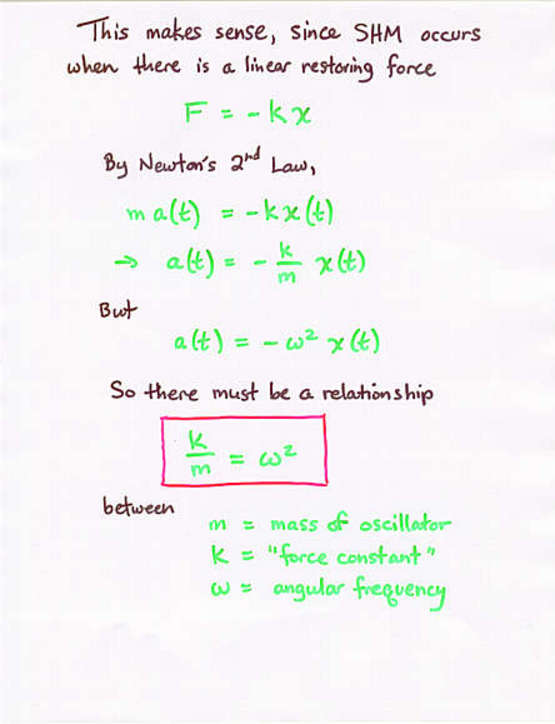 This makes sense, since SHM occurs
when there is a linear restoring force
F = -kx
By Newton's 2nd Law,
m a(t) = -kx(t)
⇒ a(t) = - k/m x(t)
But
a(t) = - ω² x(t)
So there must be a relationship
k/m = ω²
between
m = mass of oscillator
k = "force constant"
ω = angular frequency